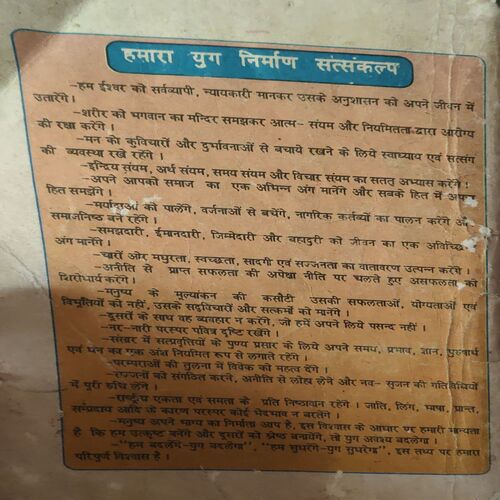 हमारा युग निर्माण सत्संकल्प
-हम ईश्वर को सर्वव्यापी, न्यायकारी मानकर उसके अनुशासन को अपने जीवन में
उतारेंगे।
-शरीर को भगवान का मन्दिर समझकर आत्म- संयम और नियमितता द्वारा आरोग्य
की रक्षा करेंगे।
-मन को कुविचारों और दुर्भावनाओं से बचाये रखने के लिये स्वाध्याय एवं सत्संग
की व्यवस्था रखे रहेंगे।
-इन्द्रिय संयम, अर्थ संयम, समय संयम और विचार संयम का सतत् अभ्यास करेंगे।
-अपने आपको समाज का एक अभिन्न अंग मानेंगे और सबके हित में अपना
हित समझेंगे।
-मर्यादाओं को पालेंगे, वर्जनाओं से बचेंगे, नागरिक कर्तव्यों का पालन करेंगे और
समाजनिष्ठ बने रहेंगे।
-समझदारी, ईमानदारी, जिम्मेदारी और बहादुरी को जीवन का एक अविच्छिन्न
अंग मानेंगे।
-चारों ओर मधुरता, स्वच्छता, सादगी एवं सज्जनता का वातावरण उत्पन्न करेंगे।
-अनीति से प्राप्त सफलता की अपेक्षा नीति पर चलते हुए असफलता को
शिरोधार्य करेंगे।
-मनुष्य के मूल्यांकन की कसौटी उसकी सफलताओं, योग्यताओं एवं
विभूतियों को नहीं, उसके सद्विचारों और सत्कर्मों को मानेंगे।
-दूसरों के साथ वह व्यवहार न करेंगे, जो हमें अपने लिये पसन्द नहीं।
-नर-नारी परस्पर पवित्र दृष्टि रखेंगे।
-संसार में सत्प्रवृत्तियों के पुण्य प्रसार के लिये अपने समय, प्रभाव, ज्ञान, पुरुषार्थ
एवं धन का एक अंश नियमित रूप से लगाते रहेंगे।
-परम्पराओं की तुलना में विवेक को महत्व देंगे।
-सज्जनों को संगठित करने, अनीति से लोहा लेने और नव- सृजन की गतिविधियों
में पूरी रुचि लेंगे।
-राष्ट्रीय एकता एवं समता के प्रति निष्ठावान रहेंगे। जाति, लिंग, भाषा, प्रान्त,
सम्प्रदाय आदि के कारण परस्पर कोई भेदभाव न बरतेंगे।
-मनुष्य अपने भाग्य का निर्माता आप है, इस विश्वास के आधार पर हमारी मान्यता
है कि हम उत्कृष्ट बनेंगे और दूसरों को श्रेष्ठ बनायेंगे, तो युग अवश्य बदलेगा।
-"हम बदलेंगे-युग बदलेगा", "हम सुधरेंगे-युग सुधरेगा", इस तथ्य पर हमारा
परिपूर्ण विश्वास है।